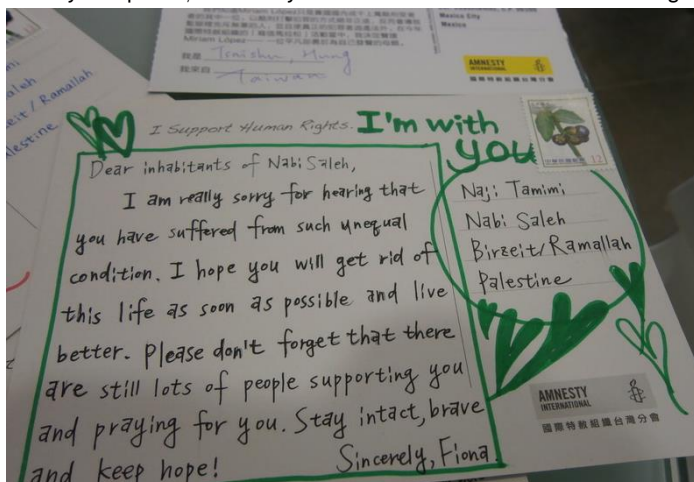 Mexico City
Mexico
Miriam López
我是 Tzuishu, Hung
我來自 Taiwan
AMNESTY
INTERNATIONAL
國際特赦組織台灣分會
aleh
eit/Ramallah
lestine
I Support Human Rights.
I'm with
you
12
Dear inhabitants of Nabi Saleh,
I am really sorry for hearing that
you have suffered from such unequal
condition. I hope you will get rid of
this life as soon as possible and live
better. Please don't forget that there
are still lots of people supporting you
and praying for you. Stay intact, brave
and keep hope!
Sincerely, Fiona.
Naji Tamimi
Nabi Saleh
Birzeit/Ramallah
Palestine
AMNESTY
INTERNATIONAL
國際特赦組織台灣分會